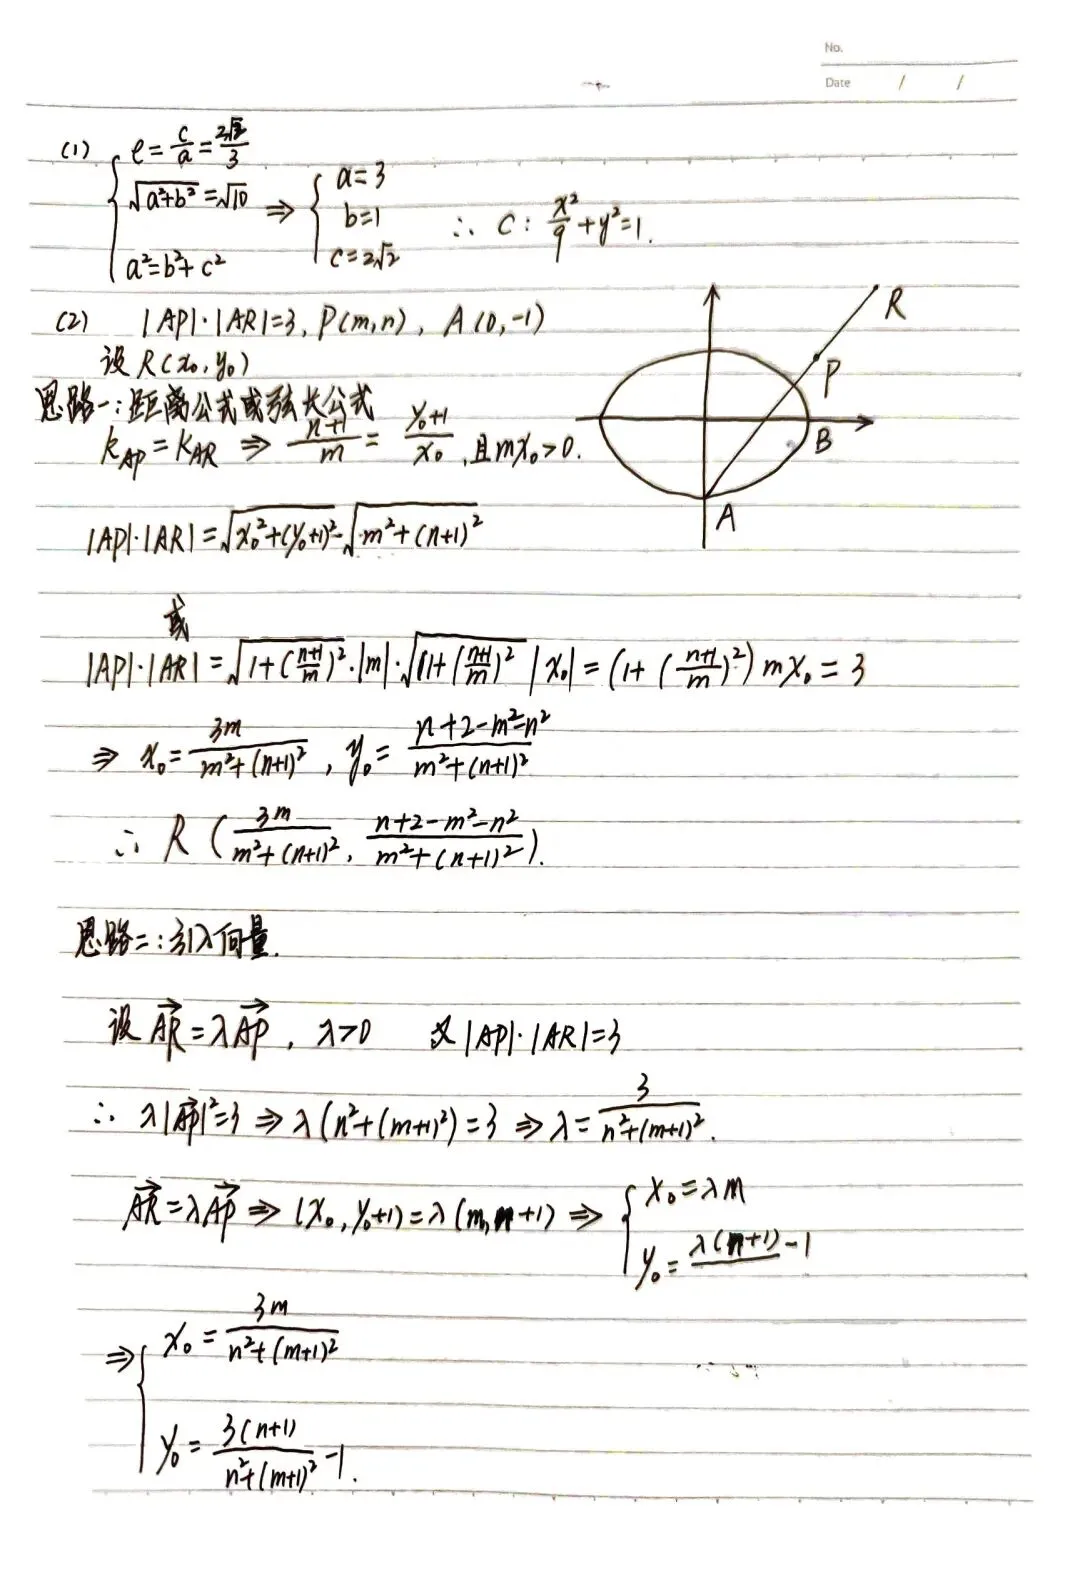 No.
Date / /
(1) { e = c/a = 2√2/3
√(a²+b²) = √10
a² = b² + c²
⇒ { a = 3
b = 1
c = 2√2
∴ C: x²/9 + y² = 1.
(2) |AP|·|AR| = 3, P(m,n), A(0,-1)
设R(x₀, y₀)
思路一: 距离公式或弦长公式
k_AP = k_AR ⇒ (n+1)/m = (y₀+1)/x₀, 且mx₀>0.
R
P
B
A
|AP|·|AR| = √(x₀²+(y₀+1)²)·√(m²+(n+1)²)
或
|AP|·|AR| = √(1+((n+1)/m)²)·|m|·√(1+((n+1)/m)²) |x₀| = (1+((n+1)/m)²) mx₀ = 3
⇒ x₀ = 3m/(m²+(n+1)²), y₀ = (n+2-m²-n²)/(m²+(n+1)²)
∴ R (3m/(m²+(n+1)²), (n+2-m²-n²)/(m²+(n+1)²)).
思路二: 引入向量.
设 AR→ = λAP→, λ>0 又|AP|·|AR|=3
∴ λ|AP→|² = 3 ⇒ λ(n²+(m+1)²) = 3 ⇒ λ = 3/(n²+(m+1)²).
AR→ = λAP→ ⇒ (x₀, y₀+1) = λ(m, n+1) ⇒ { x₀ = λm
y₀ = λ(n+1) - 1
⇒ { x₀ = 3m/(n²+(m+1)²)
y₀ = 3(n+1)/(n²+(m+1)²) - 1.